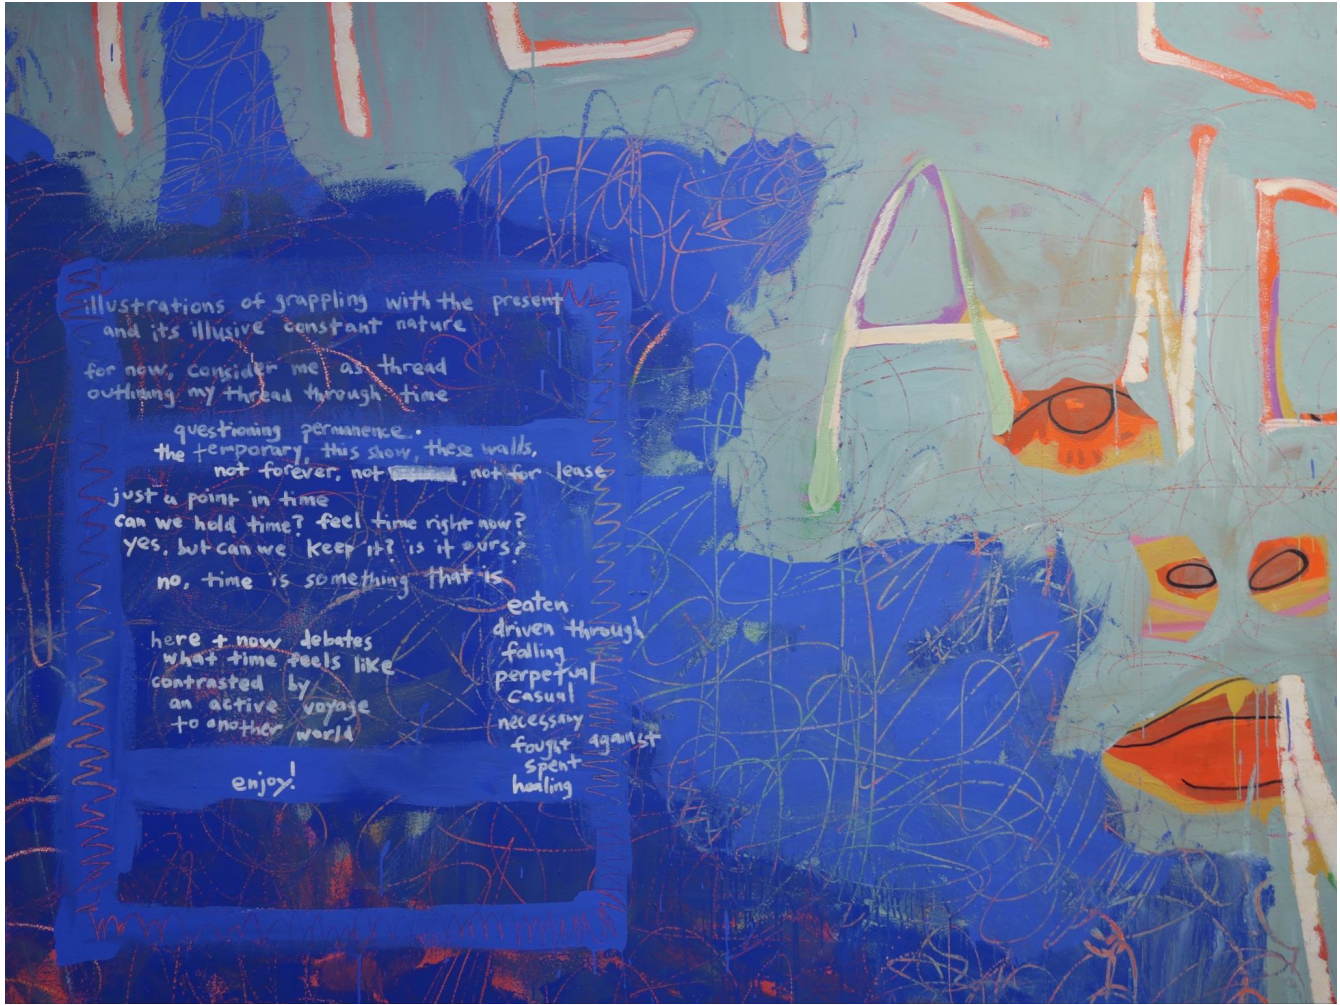 HERE
AND
N
illustrations of grappling with the present
and its illusive constant nature
for now, consider me as thread
outlining my thread through time
questioning permanence.
the temporary, this show, these walls,
not forever, not , not for lease
just a point in time
can we hold time? feel time right now?
yes, but can we keep it? is it ours?
no, time is something that is
eaten
driven through
falling
perpetual
casual
necessary
fought against
spent
healing
here + now debates
what time feels like
contrasted by
an active voyage
to another world
enjoy!